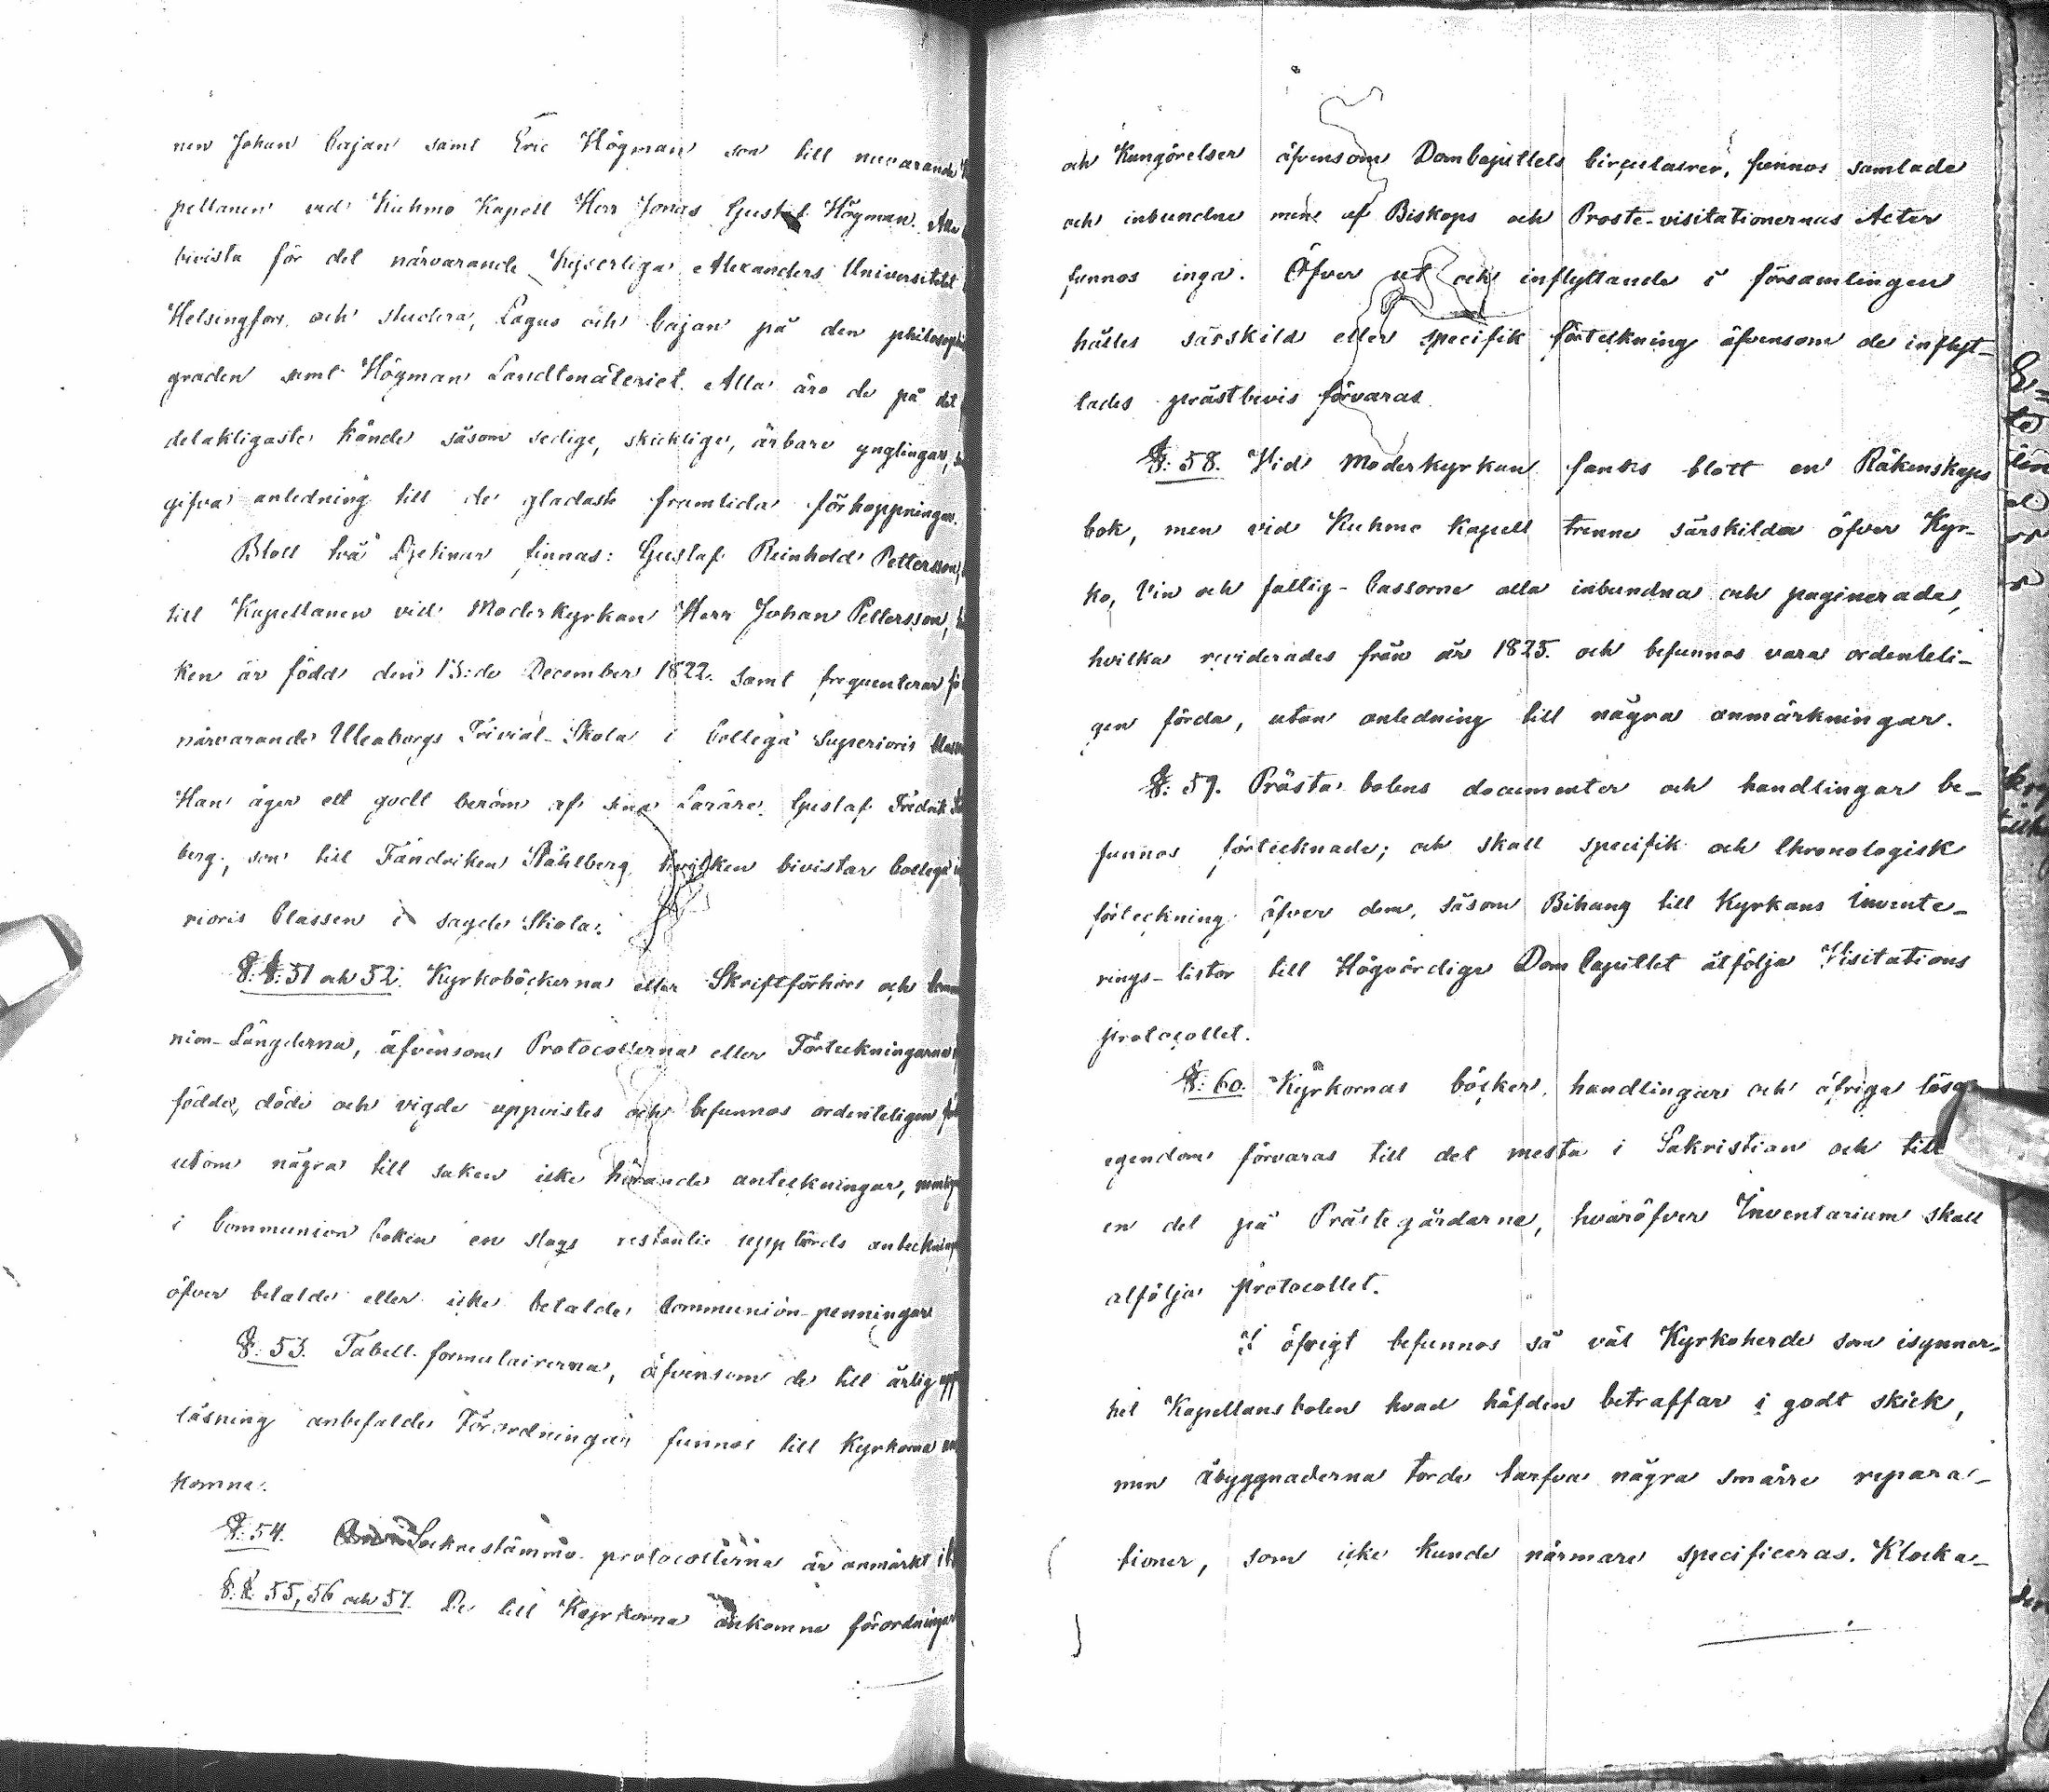 nen Johan Cajan samt Eric Högman son till nuvarande
pellanen vid Kuhmo Kapell Herr Jonas Gustaf Högman. Alla
bivista för det närvarande Kejserliga Alexanders Universitetet
Helsingfors och studera, Lagus och Cajan på den philosoph
graden samt Högman Landtmäteriet. Alla äro de på det
delakligaste kände såsom sedige, skicklige, ärbare ynglingar,
gifva anledning till de gladaste framtida förhoppningar.
Blott två Djeknar finnas: Gustaf Reinhold Pettersson,
till Kapellanen vid Moderkyrkan Herr Johan Pettersson,
ken är född den 13:de December 1822. samt frequenterar
närvarande Uleaborgs Trivial-Skola i Collega Superioris
Han äger ett godt beröm af sina Lärare. Gustaf Fredrik
berg, son till Fändriken Ståhlberg, hvilken bivistar Collega
rioris Classen i sagde Skola.
§.§: 51 och 52. Kyrkoböckerna eller Skriftförhörs och
nion-Längderna, äfvensom Protocollerna eller Förteckningarna
födde, döde och vigde uppvistes och befunnos ordenteligen
utom några till saken icke hörande anteckningar,
i Communion boken en slags restantie uppbörds anteckning
öfver betalde eller icke betalde Communion-penningar
§: 53. Tabell-formulairerna, äfvensom de till årlig upp
läsning anbefalde Förordningar funnos till Kyrkorna
komne.
§: 54. Sockenstämmo-protocollerna är anmärkt
§.§ 55, 56 och 57. De till Kyrkorna ankomne förordningar
och Kungörelser äfvensom DomCapittlets Circulairer, funnos samlade
och inbundne men af Biskops och Proste-visitationernas Acter
funnos inga. Öfver ut och inflyttande i församlingen
hålles särskild eller specifik förteckning äfvensom de inflyt-
tades prästbevis förvaras.
§: 58. Vid Moderkyrkan fanns blott en Räkenskaps
bok, men vid Kuhmo Kapell trenne särskilda öfver Kyr-
ko, Vin och fattig-Cassorne alla inbundna och paginerade,
hvilka reviderades från år 1825. och befunnos vara ordenteli-
gen förda, utan anledning till några anmärkningar.
§: 59. Prästa bolens documenter och handlingar be-
funnos förtecknade; och skall specifik och Chronologisk
förteckning öfver dem, såsom Bihang till Kyrkans Invente-
rings-listor till Högvördige DomCapitlet åtfölja Visitations
protocollet.
§: 60. Kyrkornas böcker, handlingar och öfriga lösa
egendom förvaras till det mesta i Sakristian och till
en del på Prästegårdarna, hvaröfver Inventarium skall
åtfölja Protocollet.
I öfrigt befunnos så väl Kyrkoherde som isynner-
het Kapellans bolen hvad häfden beträffar i godt skick,
men åbyggnaderna torde tarfva några smärre repara-
tioner, som icke kunde närmare specificeras. Klocka-